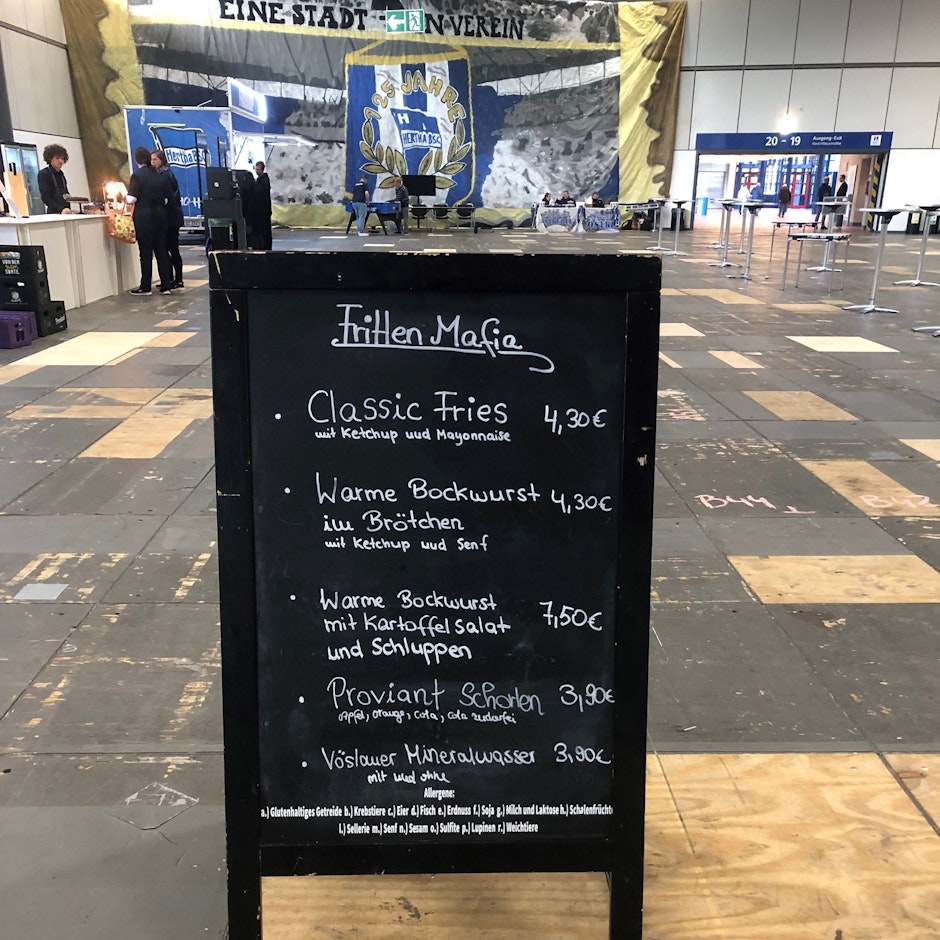 EINE STADT N VEREIN
125 JAHRE
H
HERTHA BSC
Hertha BSC
20 - 19
Ausgang · Exit
Fritten Mafia
• Classic Fries 4,30€
mit Ketchup und Mayonnaise
• Warme Bockwurst 4,30€
im Brötchen
mit Ketchup und Senf
• Warme Bockwurst
mit Kartoffelsalat 7,50€
und Schluppen
• Proviant Schorlen 3,90€
Apfel, Orange, Cola, Cola zuckerfei
• Vöslauer Mineralwasser 3,90€
mit und ohne
Allergene:
a.) Glutenhaltiges Getreide b.) Krebstiere c.) Eier d.) Fisch e.) Erdnuss f.) Soja g.) Milch und Laktose h.) Schalenfrücht
l.) Sellerie m.) Senf n.) Sesam o.) Sulfite p.) Lupinen r.) Weichtiere
B44